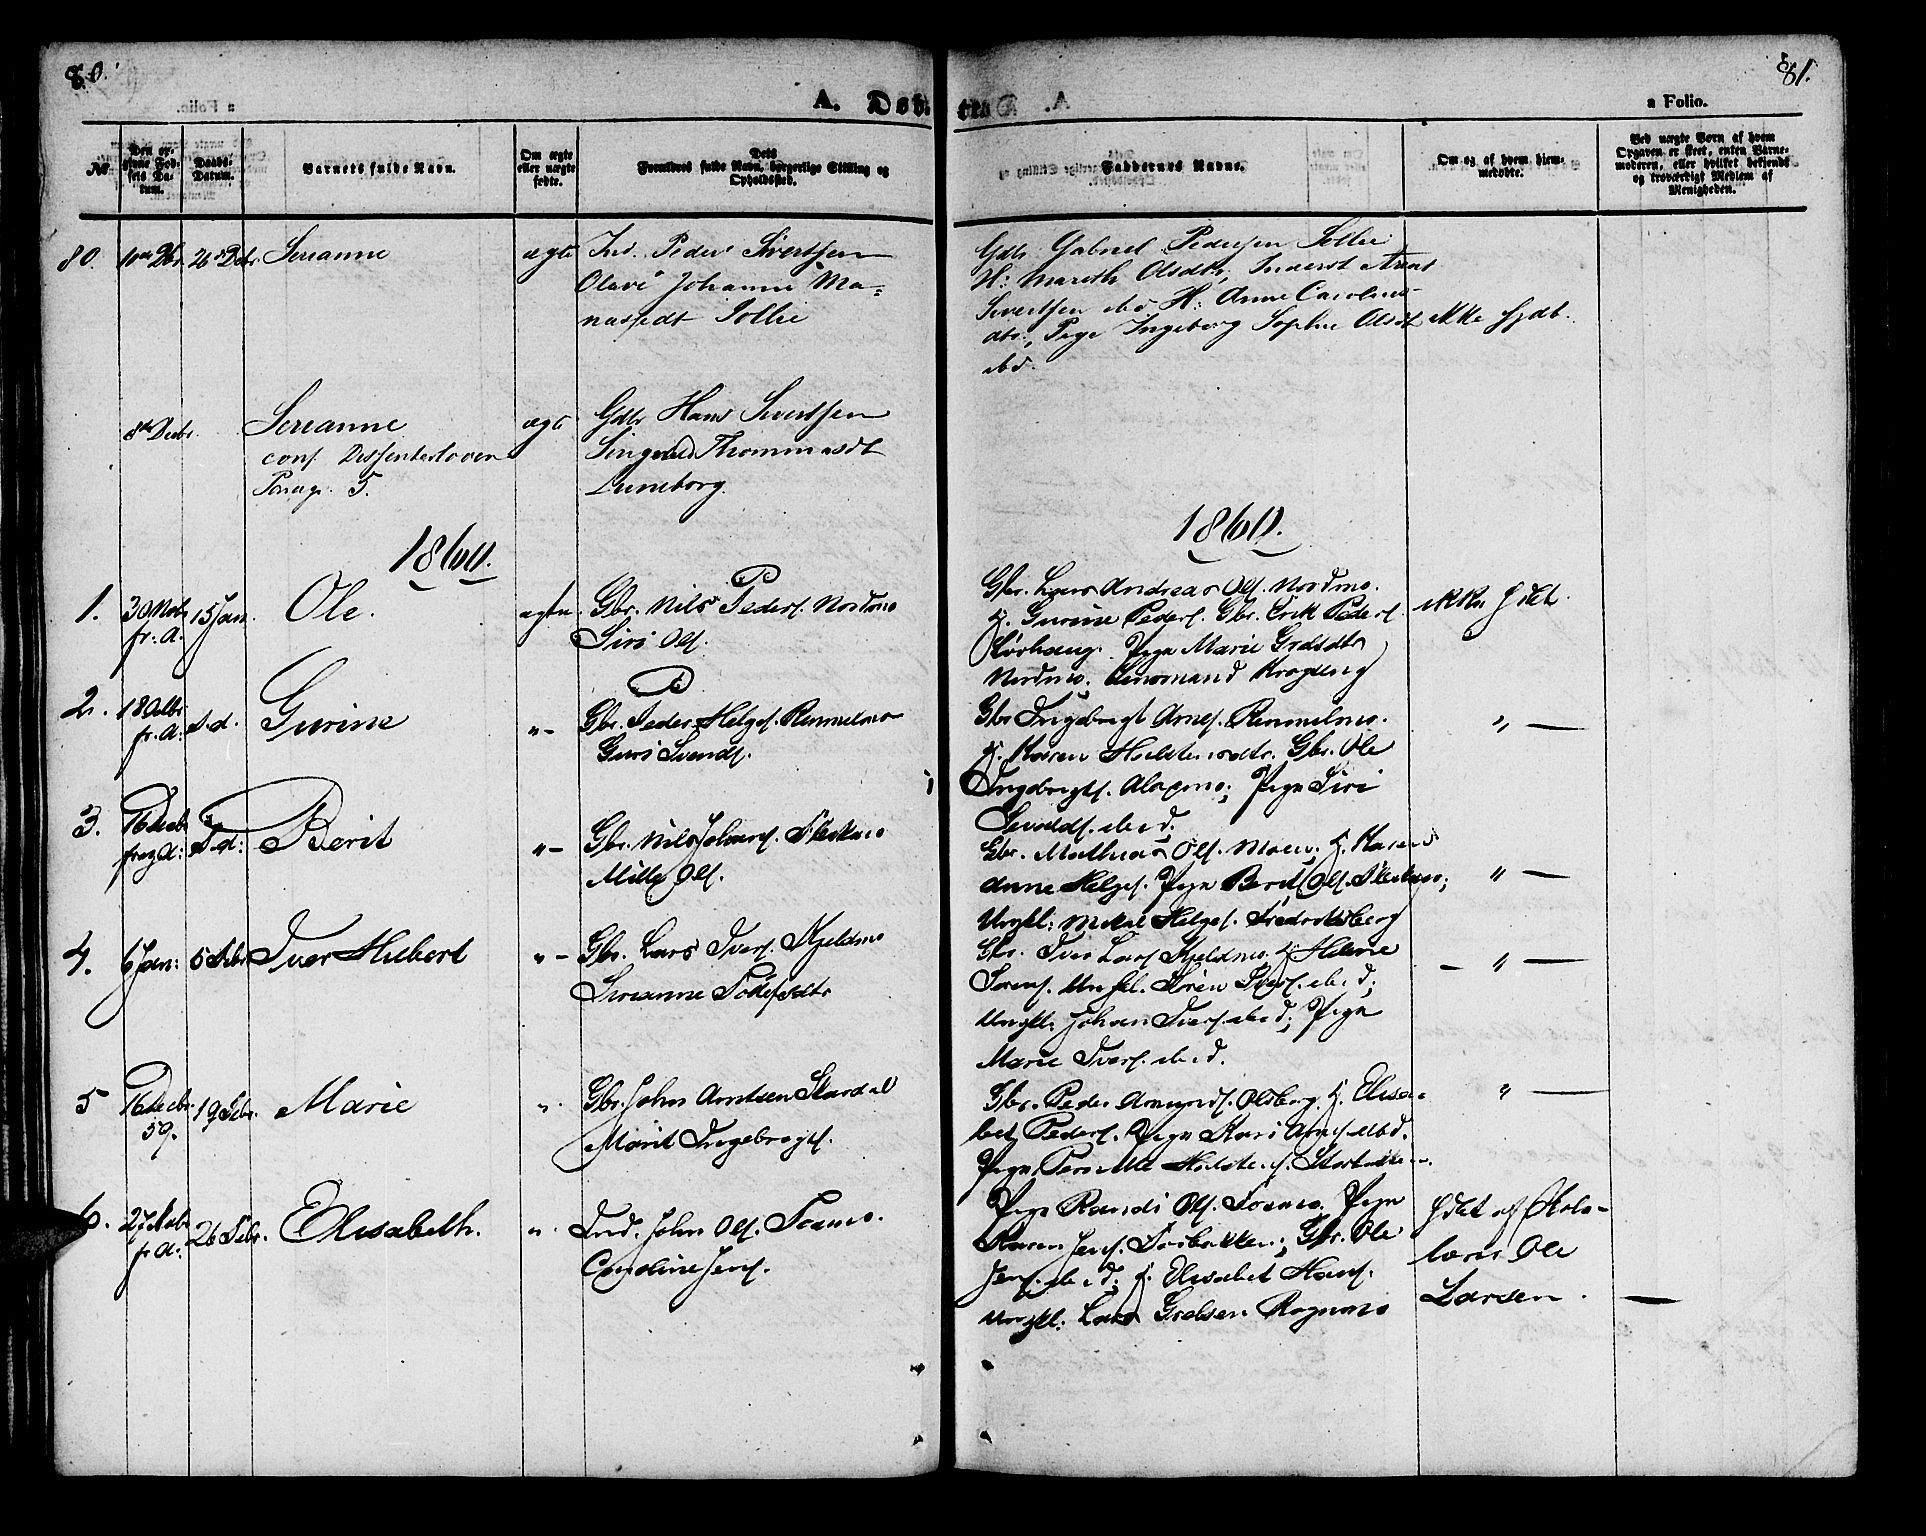 80.
A. Døb
a Folio.
81.
No.
Den opgivne Fødsels Datum.
Daabs-Datum.
Barnets fulde Navn.
Om ægte eller uægte fødte.
Dets Forældres fulde Navn, borgerlige Stilling og Opholdssted.
Faddernes Navne.
Om og af hvem hjemmedøbte.
Ved uægte Born af hvem Opgaven er skeet, enten Barnemoderen, eller hvilket bekjendt og troværdigt Medlem af Menigheden.
80.
26 Dcbr.
Serianne
ægte
Ind. Peder Sivertsen
Olave Johanne Ma=
nassedt Sollie
Gdbr Gabriel Pedersen Sollie
H: Mareth Olsdtr, Inderst Arent
Sivertsen ibd H: Anne Carolius
dtr, Pige Ingeborg Sophie Olsdt
ibd.
ikke hjdbt.
8de Decbr.
Serianne
conf. Dissenterloven
Parag. 5.
ægte
Gdbr Hans Sivertsen
Thommasdt
Luneborg.
1860.
1860.
1.
30 Nov.
fr. A.
15 Jan.
Ole.
ægte.
Gbr. Nils Peders. Nordmo
Siri Ols.
Gbr. Lars Andreas Ols. Nordmo.
H. Gurine Peders. Gbr. Erik Peders.
Pige Marie
Nordmo.
ikke hjdbt.
2.
18 Octbr
fr. A:
s. d.
Gurine
"—
Gbr. Peder Helges. Rummelmo
Guri Svends.
Gbr Ingebrigt Arnes. Rummelmo.
H. Karen Gbr. Ole
Ingebrigts. Alapmo; Pige Siri
ibid;
" —
3.
16 Decbr
frag A:
S. d:
Berit
"—
Gbr. Nils Johans.
Mille Ols.
Gbr. Mathias Ols. Moen; H. Karen
Anne Helges. Pige Berit Ols.
Ungkl: Mikal Helges. Fredriksberg
" —
4.
6 Jan:
5 Febr
Iver Hilbert
"—
Gbr. Lars Ivers. Kjeldmo
Serianne
Gbr. Iver Lars. Kjeldmo. H Helene
Sørens. Ungkl. Søren Ivers. ibid;
Ungkl. Johan Ivers. ibid; Pige
Marie Ivers. ibid.
— " —
5
16 Decbr.
59.
19 Febr.
Marie
"
Gbr. John Arntsen Skardal
Marit Ingebrigts.
Gbr. Peder Amunds. Olsborg. H. Elisa-
bet Peders. Pige Kari Arnes ibd.
Pige Pernille
" —
6.
27 Nov
fr. A:
26 Febr.
Elisabeth.
"
Ind. John Ols. Fosmo.
Caroline Jens.
Pige Randi Ols. Fosmo. Pige
Karen Jens. Fosbakken; Gbr. Ole
Jens. ibid; H. Elisabet Hans.
Ungkl: Lars
hjdbt af Skole-
lærer Ole
Larsen.
—